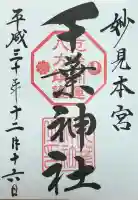 妙見本宮
千葉神社
平成三十年十二月十六日